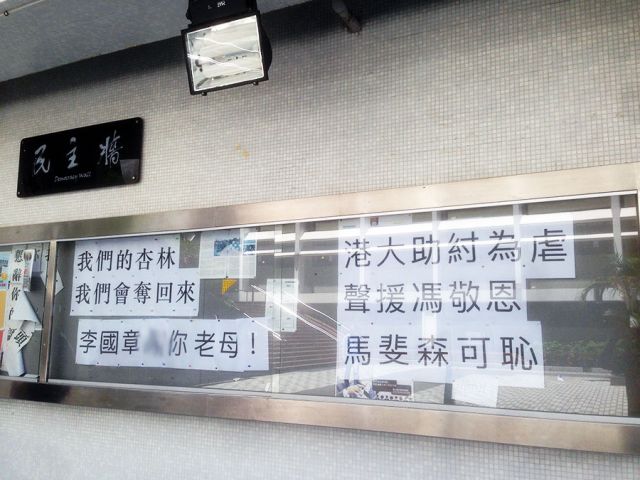 民主牆
Democracy Wall
我們的杏林
我們會奪回來
李國章 你老母！
港大助紂為虐
聲援馮敬恩
馬斐森可恥